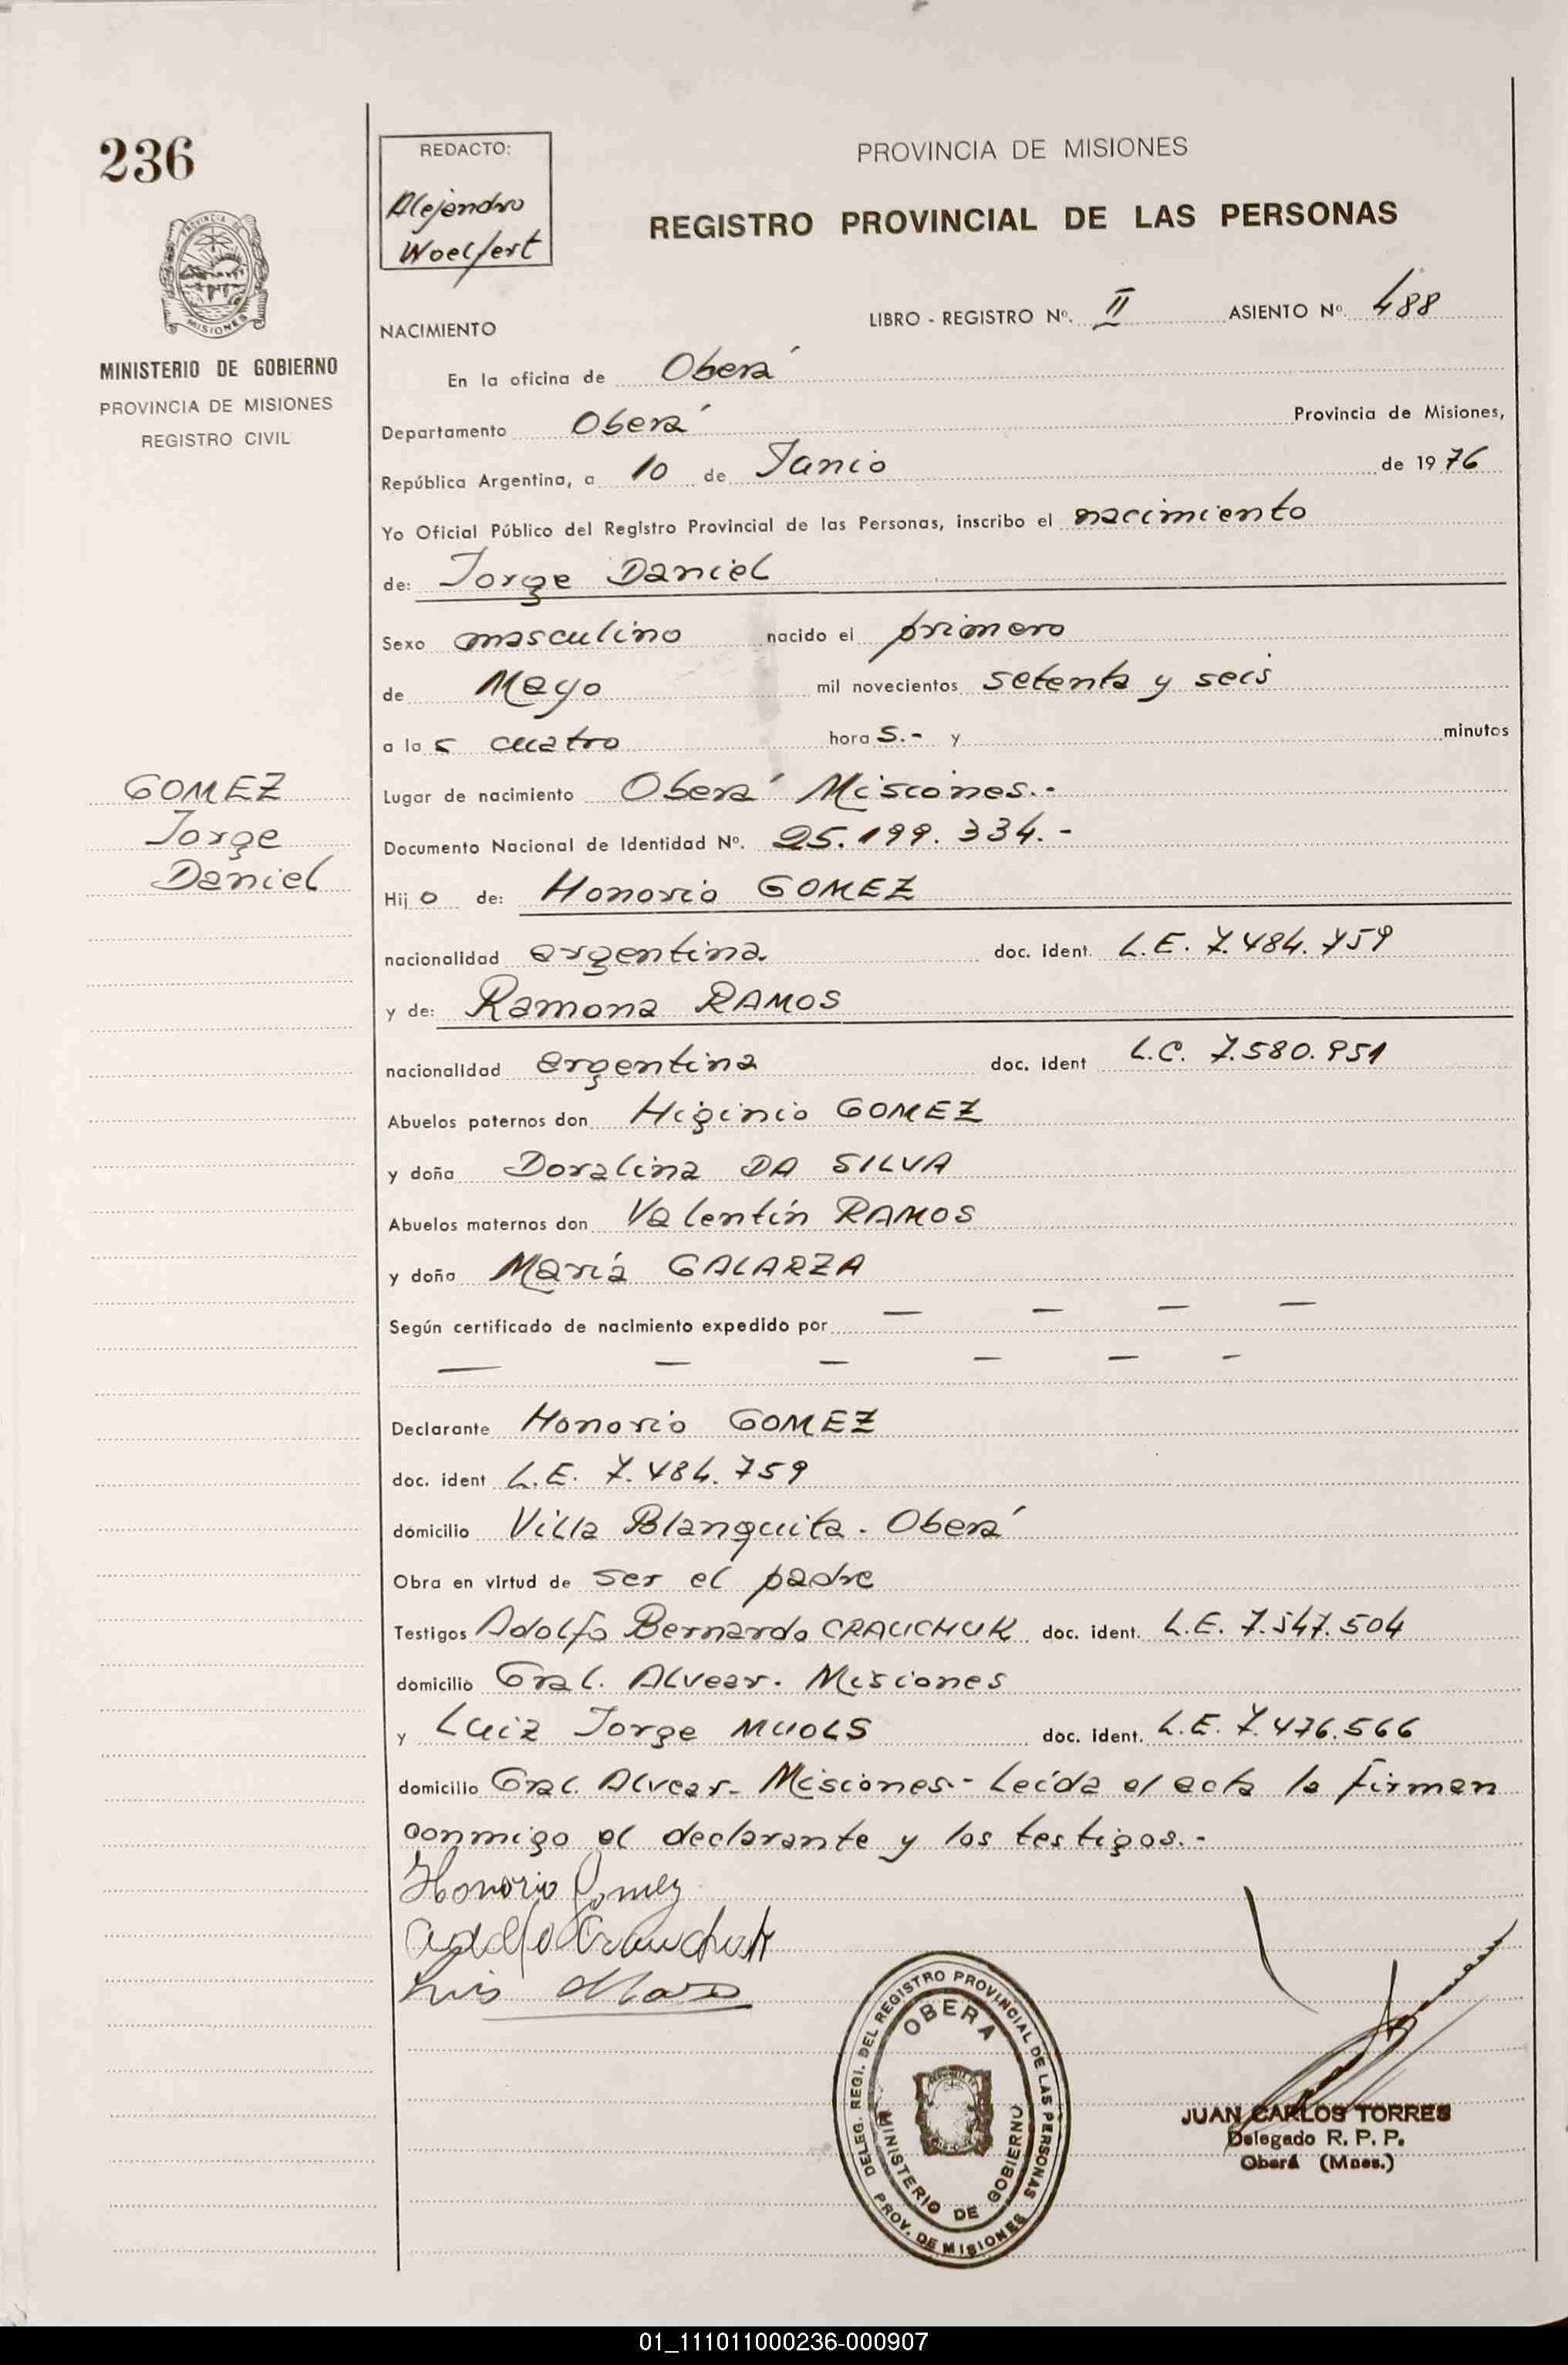 236
REDACTO:
Alejandro
Woelfert
PROVINCIA DE MISIONES
REGISTRO PROVINCIAL DE LAS PERSONAS
MISIONES
MINISTERIO DE GOBIERNO
PROVINCIA DE MISIONES
REGISTRO CIVIL
NACIMIENTO
LIBRO - REGISTRO Nº. II ASIENTO Nº. 488
En la oficina de Oberá
Departamento Oberá Provincia de Misiones,
República Argentina, a 10 de Junio de 1976
Yo Oficial Público del Registro Provincial de las Personas, inscribo el nacimiento
de: Jorge Daniel
Sexo masculino nacido el primero
de Mayo mil novecientos setenta y seis
a las cuatro hora s.- y minutos
GOMEZ
Jorge
Daniel
Lugar de nacimiento Oberá Misiones.-
Documento Nacional de Identidad Nº. 25.199.334.-
Hijo de: Honorio GOMEZ
nacionalidad argentina. doc. ident. L.E. 7.484.759
y de: Ramona RAMOS
nacionalidad argentina doc. ident L.C. 7.580.951
Abuelos paternos don Higinio GOMEZ
y doña Doralina DA SILVA
Abuelos maternos don Valentín RAMOS
y doña María GALARZA
Según certificado de nacimiento expedido por — — — —
— — — — — —
Declarante Honorio GOMEZ
doc. ident L.E. 7.484.759
domicilio Villa Blanquita. Oberá
Obra en virtud de ser el padre
Testigos Adolfo Bernardo CRAUCHUK doc. ident. L.E. 7.547.504
domicilio Gral. Alvear. Misiones
y Luiz Jorge MUOLS doc. ident. L.E. 7.476.566
domicilio Gral. Alvear- Misiones.- Leída el acta la firman
conmigo el declarante y los testigos.-
Honorio Gomez
Adolfo Crauchuk
Luis
DELEG. REGI. DEL REGISTRO PROVINCIAL DE LAS PERSONAS
OBERA
MINISTERIO DE GOBIERNO
PROV. DE MISIONES
JUAN CARLOS TORRES
Delegado R. P. P.
Oberá (Mnes.)
01_111011000236-000907